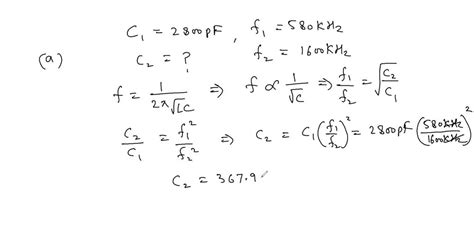 C₁ = 2800pF , f₁ = 580KHz
(a) C₂ = ? f₂ = 1600KHz
f = 1/(2π√LC) ⇒ f ∝ 1/√C ⇒ f₁/f₂ = √(C₂/C₁)
C₂/C₁ = f₁²/f₂² ⇒ C₂ = C₁(f₁/f₂)² = 2800pF(580KHz/1600KHz)²
C₂ = 367.9